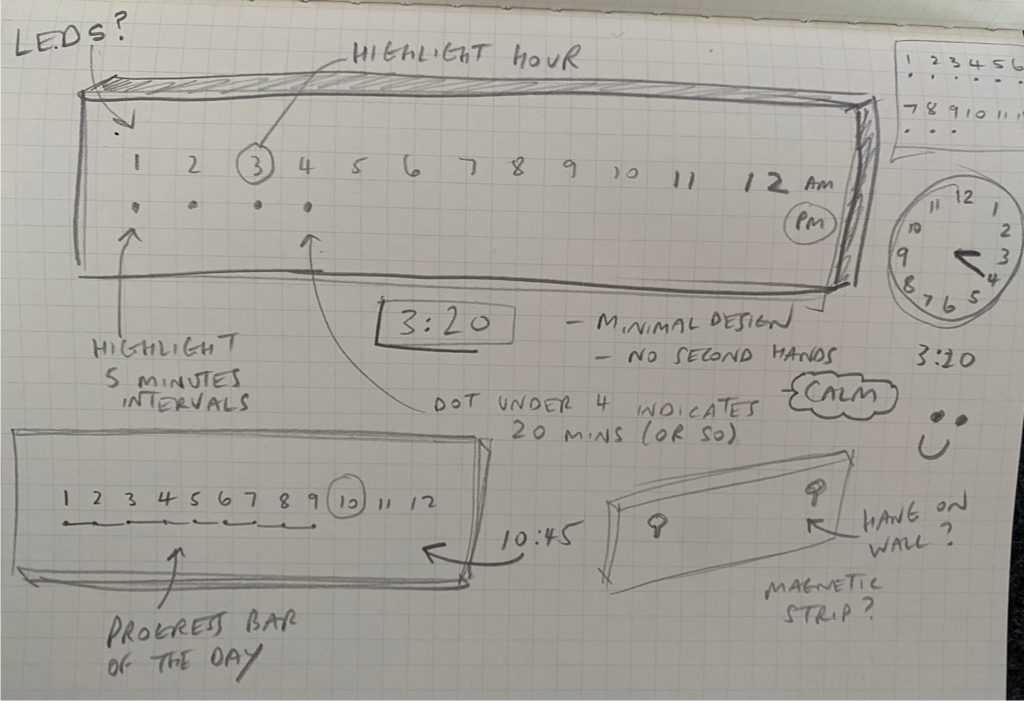 LEDS?
HIGHLIGHT HOUR
1 2 3 4 5 6
7 8 9 10 11
1 2 3 4 5 6 7 8 9 10 11 12 AM
PM
12
11 1
10 2
9 3
8 4
7 6 5
3:20
3:20
- MINIMAL DESIGN
- NO SECOND HANDS
- CALM
HIGHLIGHT
5 MINUTES
INTERVALS
DOT UNDER 4 INDICATES
20 MINS (OR SO)
1 2 3 4 5 6 7 8 9 10 11 12
10:45
PROGRESS BAR
OF THE DAY
HANG ON
WALL?
MAGNETIC
STRIP?